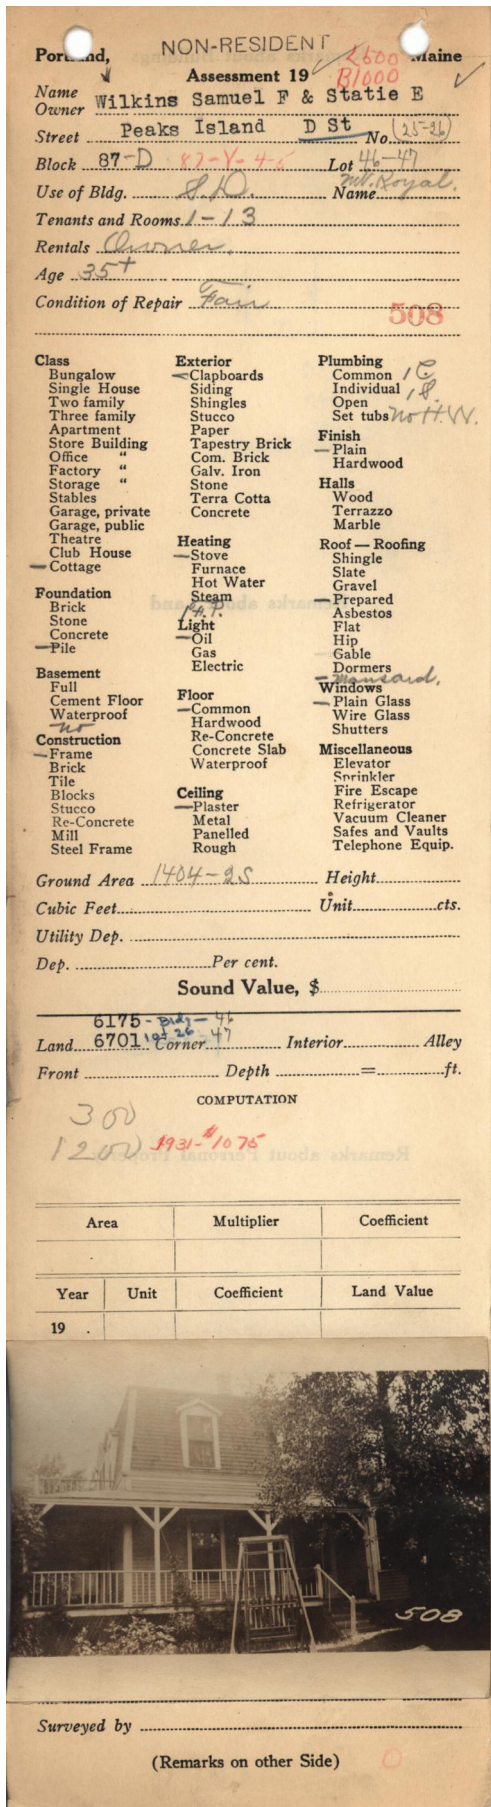 NON-RESIDENT
Portland, Maine
L600
B1000
Assessment 19
Name
Owner Wilkins Samuel F & Statie E
Street Peaks Island D St No. (25-26)
Block 87-D 87-Y-4-5 Lot 46-47
Use of Bldg. S.D. Name Mt. Royal.
Tenants and Rooms 1-13
Rentals Owner.
Age 35+
Condition of Repair Fair
508
Class
Bungalow
Single House
Two family
Three family
Apartment
Store Building
Office "
Factory "
Storage "
Stables
Garage, private
Garage, public
Theatre
Club House
Cottage
Foundation
Brick
Stone
Concrete
Pile
Basement
Full
Cement Floor
Waterproof
no
Construction
Frame
Brick
Tile
Blocks
Stucco
Re-Concrete
Mill
Steel Frame
Exterior
Clapboards
Siding
Shingles
Stucco
Paper
Tapestry Brick
Com. Brick
Galv. Iron
Stone
Terra Cotta
Concrete
Heating
Stove
Furnace
Hot Water
Steam
1 F.P.
Light
Oil
Gas
Electric
Floor
Common
Hardwood
Re-Concrete
Concrete Slab
Waterproof
Ceiling
Plaster
Metal
Panelled
Rough
Plumbing
Common 1 C
Individual 1 S.
Open
Set tubs no H.W.
Finish
Plain
Hardwood
Halls
Wood
Terrazzo
Marble
Roof — Roofing
Shingle
Slate
Gravel
Prepared
Asbestos
Flat
Hip
Gable
Dormers
Mansard.
Windows
Plain Glass
Wire Glass
Shutters
Miscellaneous
Elevator
Sprinkler
Fire Escape
Refrigerator
Vacuum Cleaner
Safes and Vaults
Telephone Equip.
Ground Area 1404-2S Height
Cubic Feet Unit cts.
Utility Dep.
Dep. Per cent.
Sound Value, $
6175- Bldg- 46
Land 6701 lot 26 47 Corner Interior Alley
Front Depth = ft.
COMPUTATION
300
1200 1931-$1075
Area Multiplier Coefficient
Year Unit Coefficient Land Value
19 .
508
Surveyed by
(Remarks on other Side)